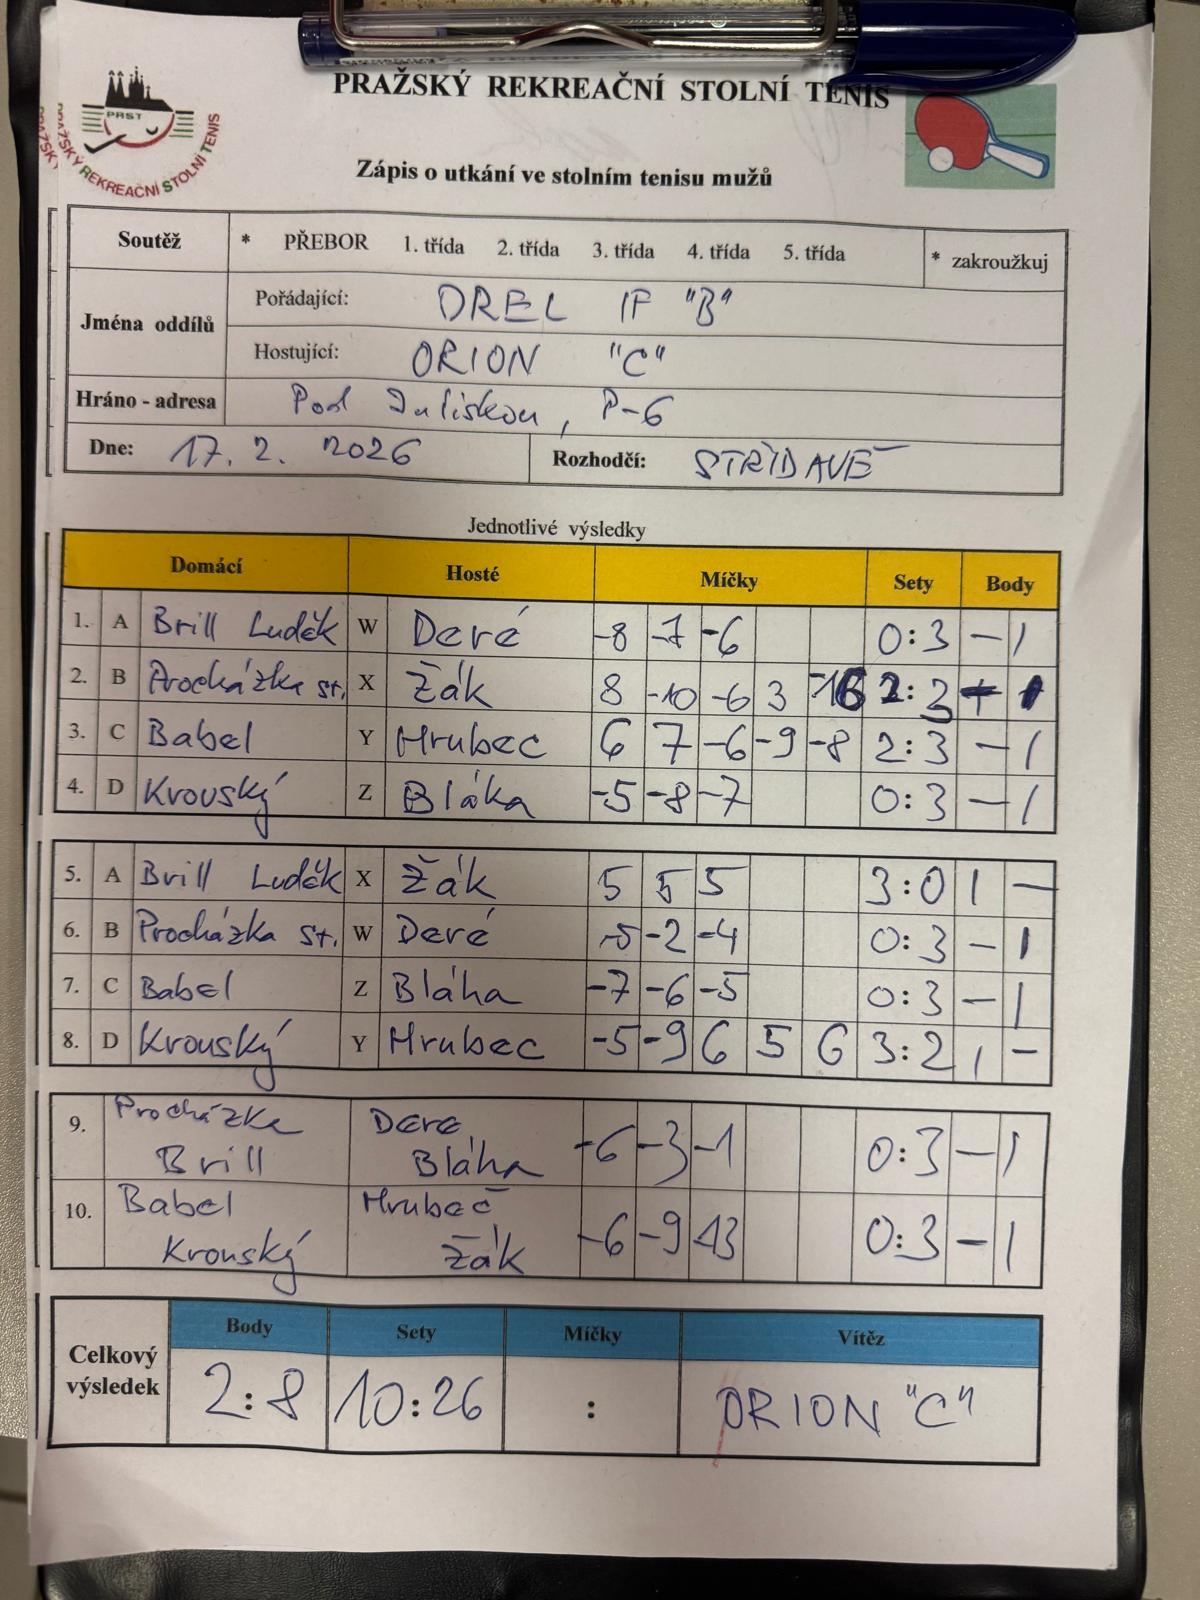 PRAŽSKÝ REKREAČNÍ STOLNÍ TENIS
PRST
PRAŽSKÝ REKREAČNÍ STOLNÍ TENIS
Zápis o utkání ve stolním tenisu mužů
Soutěž * PŘEBOR 1. třída 2. třída 3. třída 4. třída 5. třída * zakroužkuj
Jména oddílů
Pořádající: DREL IF "B"
Hostující: ORION "C"
Hráno - adresa Pod Juliskou, P-6
Dne: 17. 2. 2026 Rozhodčí: STŘÍDAVĚ
Jednotlivé výsledky
Domácí Hosté Míčky Sety Body
1. A Brill Luděk W Deré -8 -7 -6 0:3 - 1
2. B Procházka st. X Žák 8 -10 -6 3 -16 2:3 - 1
3. C Babel Y Hrubec 6 7 -6 -9 -8 2:3 - 1
4. D Krouský Z Bláha -5 -8 -7 0:3 - 1
5. A Brill Luděk X Žák 5 5 5 3:0 1 -
6. B Procházka st. W Deré -5 -2 -4 0:3 - 1
7. C Babel Z Bláha -7 -6 -5 0:3 - 1
8. D Krouský Y Hrubec -5 -9 6 5 6 3:2 1 -
9. Procházka Deré
Brill Bláha -6 -3 -1 0:3 - 1
10. Babel Hrubec
Krouský Žák -6 -9 -13 0:3 - 1
Celkový výsledek
Body Sety Míčky Vítěz
2:8 10:26 : ORION "C"